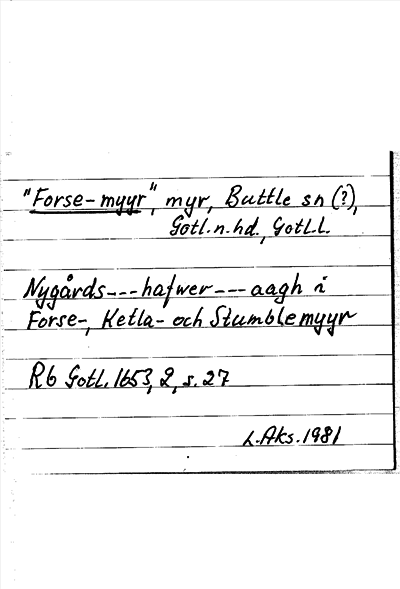 "Forse-myyr", myr, Buttle sn (?),
Gotl. n. hd., Gotl.l.
Nygårds---hafwer---aagh i
Forse-, Ketla- och Stumblemyyr
Rb Gotl. 1653, 2, s. 27
L. Aks. 1981